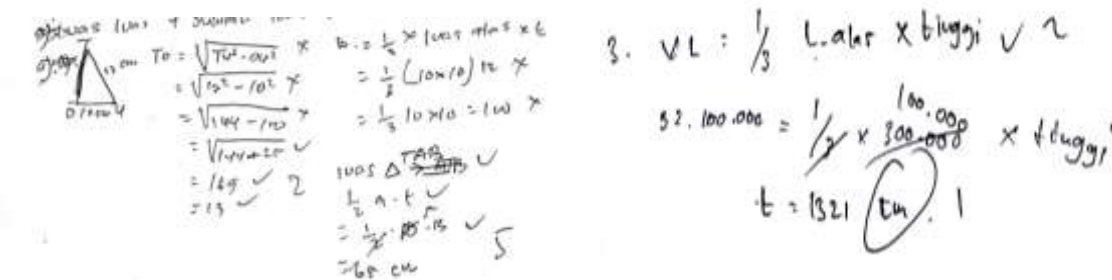 luas
12 cm
O 10 cm U
TO = √TU² - OU² ×
= √12² - 10² ×
= √144 - 100 ×
= √144 + 25 ✓
= 169 ✓ 2
= 13 ✓
b. = 1/3 × luas alas × t
= 1/3 (10×10) 12 ×
= 1/3 10×10 = 100 ×
luas Δ TAB ✓
1/2 a . t ✓
= 1/2 . 5 . 13 ✓
= 65 cm 5
3. VL = 1/3 L.alas × tinggi ✓ 2
32.100.000 = 1/3 × 300.000 100.000 × tinggi
t = 1321 cm . 1